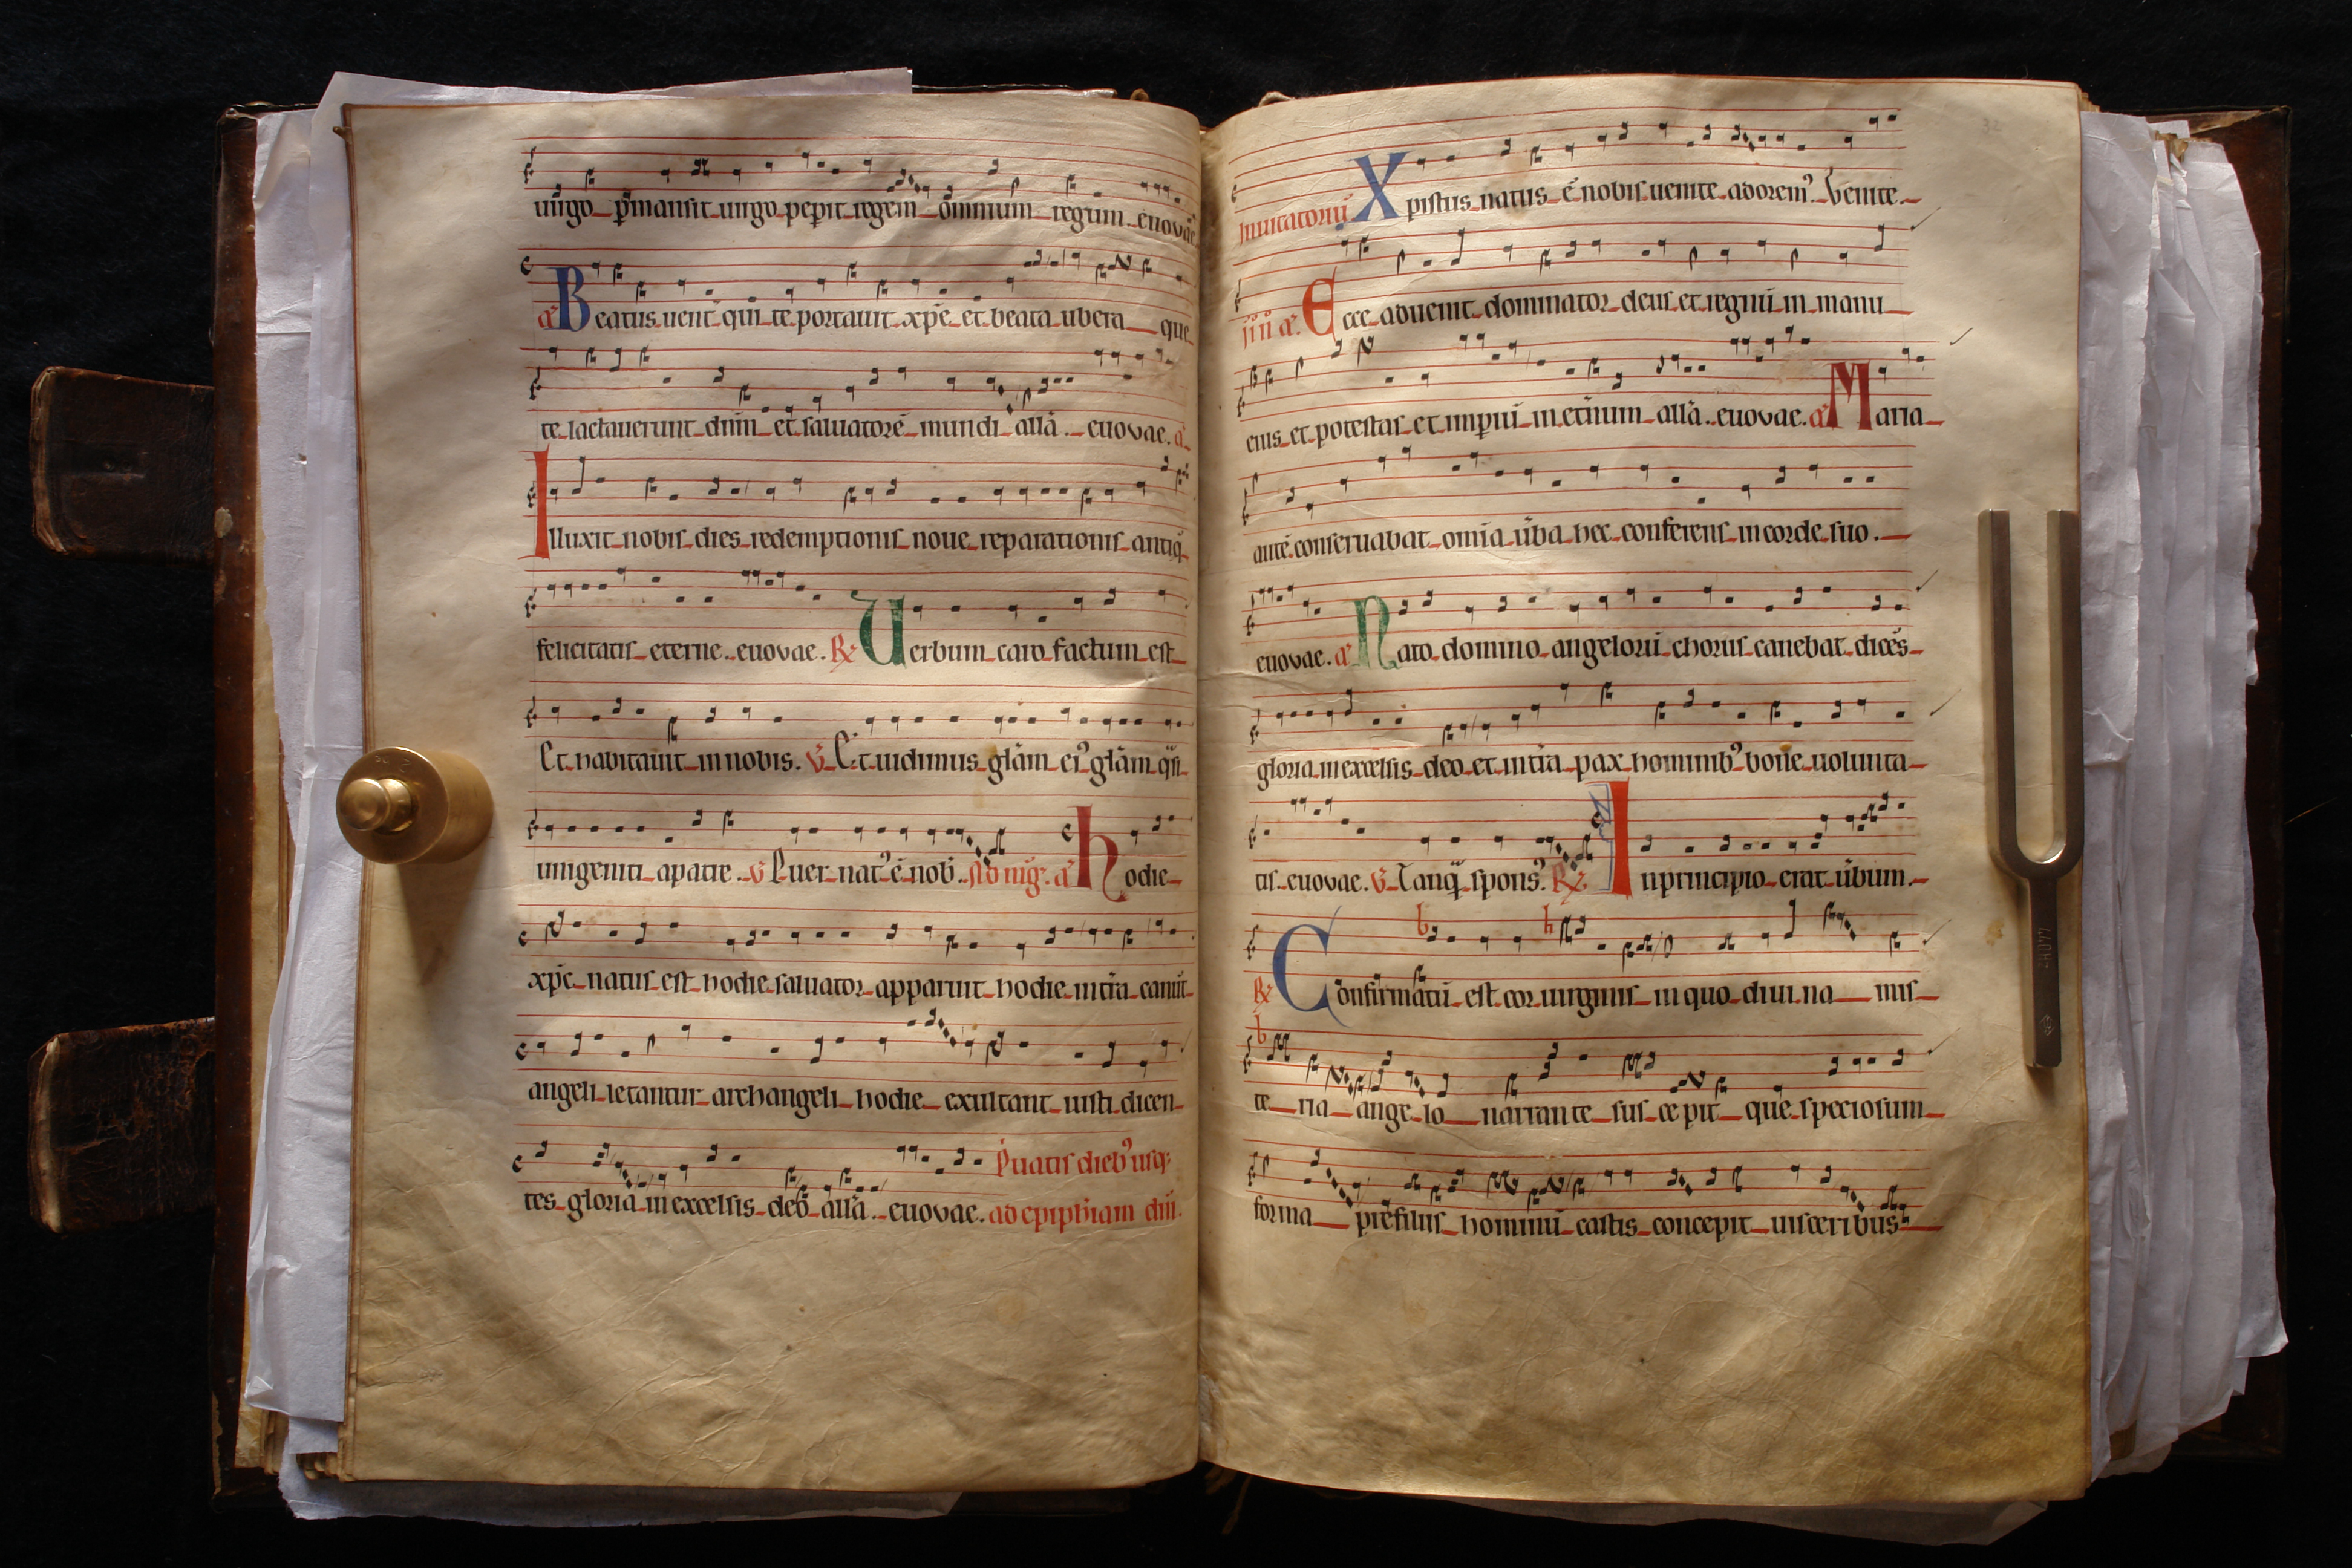 uirgo p̄mansit uirgo peperit regem omnium regum. euovae
a᷒ Beatus uent̄ qui te portauit xp̄e et beata ubera que
te lactauerunt dn̄m et saluatorē mundi all̄a. euovae. a᷒
Illuxit nobis dies redemptionis noue reparationis antiq̄
felicitatis eterne. euovae. ℟ Uerbum caro factum est
Et habitauit in nobis. ℣ Et uidimus gl̄am ei᷒ gl̄am q̄si
unigeniti a patre. ℣ Puer nat᷒ ē nob̄. Ad mḡ. a᷒ Hodie
xp̄c natus est hodie saluator apparuit hodie in tr̄a canūt
angeli letantur archangeli hodie exultant iusti dicen
tes gloria in excelsis deo all̄a. euovae. P̄uatis dieb᷒ usq;
ad epiph̄iam dn̄i.
Inuitatoriū Xpistus natus ē nobis uenite adorem᷒. Venite.
Ecce aduenit dominator deus et regnū in manu
eius et potestas et imp̄iū in et̄num all̄a. euovae. a᷒ Maria
autē conseruabat om̄ia ūba hec conferens in corde suo.
euovae. a᷒ Nato domino angelorū chorus canebat dicēs
gloria in excelsis deo et in tr̄a pax hominib᷒ bone uolunta
tis. euovae. ℣ Tanq̄ spons᷒. ℟ In principio erat ūbum.
℟ Confirmatū est cor uirginis in quo diui na mis
te ria ange lo narrante sus ce pit que speciosum
forma pre filiis hominū castis concepit uisceribus
32